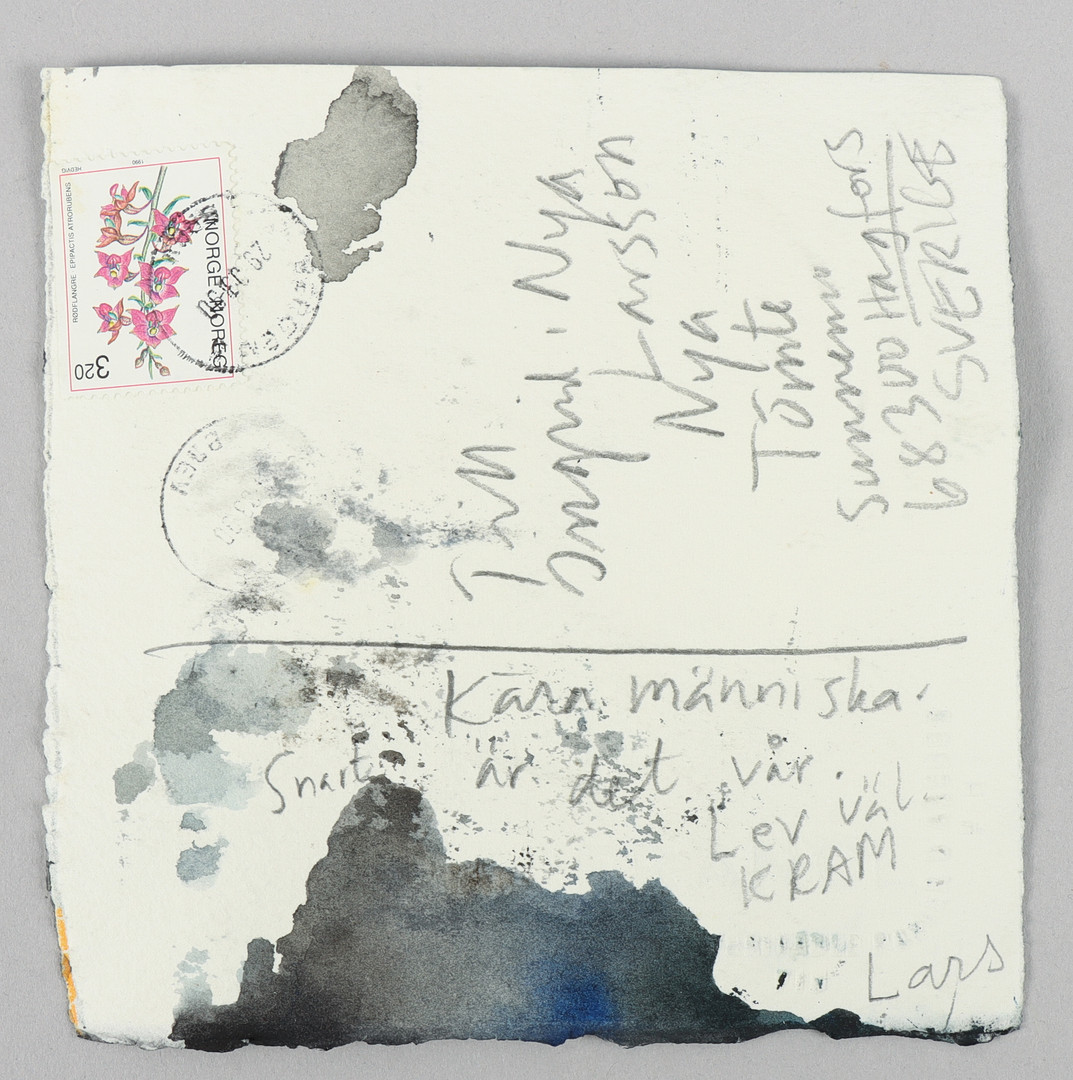 HEDVIG 1990
RØDFLANGRE EPIPACTIS ATRORUBENS
NORGE NOREG
3 20
Till
Ingrid . Nya
Larsson
Nya
Tomte
Sunnemo
68300 Hagfors
SVERIGE
Kära människa.
Snart är det vår.
Lev väl.
KRAM
Lars